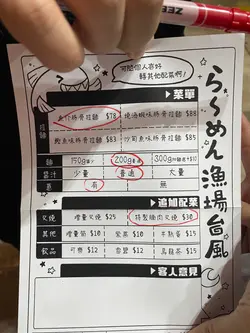 ZEB
可能個人喜好
轉其他配菜啊!
菜單
拉麵
魚介豚骨拉麵 $78
燒酒蝦味豚骨拉麵 $88
鮑魚味豚骨拉麵 $88
沙甸魚味豚骨拉麵 $88
麵
150g
200g
300g
醬汁
少量
普通
大量
蔥
有
無
追加配菜
叉燒
增量叉燒 $25
特製豬肉叉燒 $30
其他
增量筍 $10
紫菜 $10
半熟蛋 $15
飲品
可樂 $12
$12
烏龍茶 $15
客人意見
らーめん漁場台風